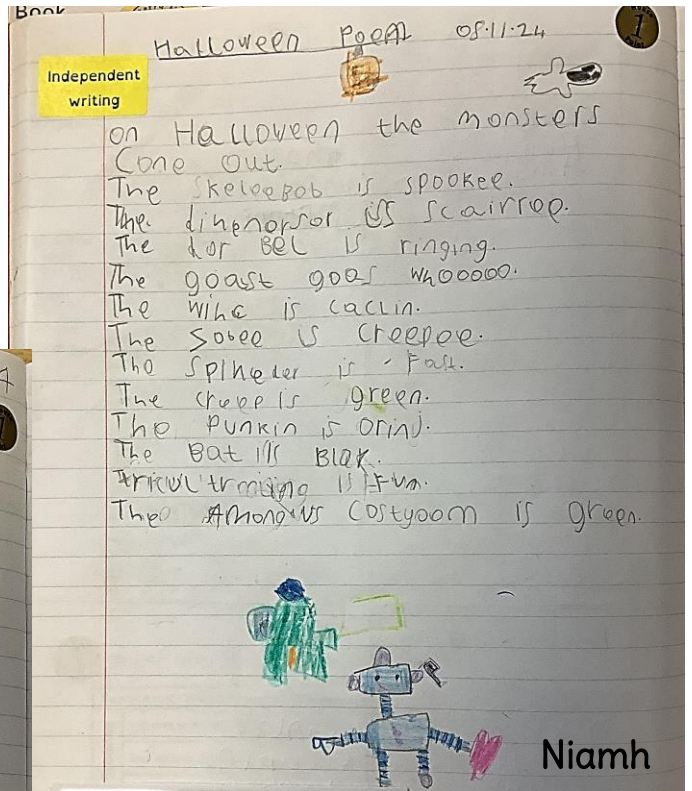 Book
Halloween Poem 08.11.24
1
Independent
writing
on Halloween the monsters
Cone out.
The skeleebob is spookee.
The dinenorsor is scairree.
The dor Bel is ringing.
The goast goas whooooo.
The wihc is caclin.
The Sobee is creepee.
The Spiheder is Fast.
The creep is green.
The Punkin is orinj.
The Bat is Blak.
is Fun.
The Among us Costyoom is green.
Niamh